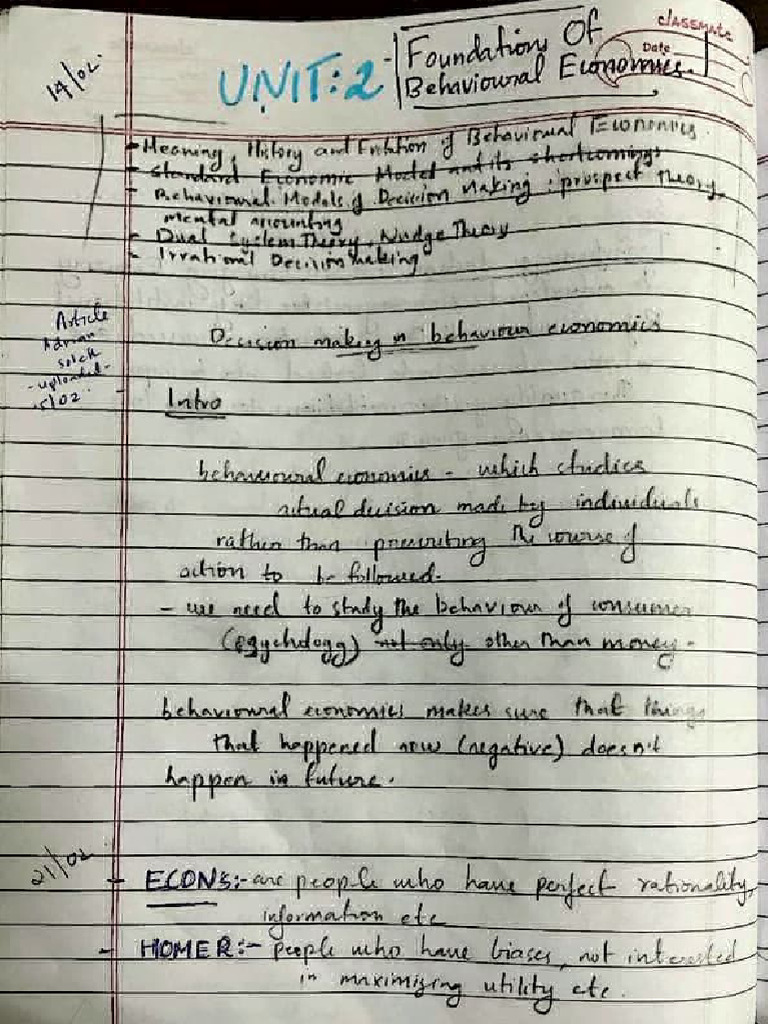 classmate
Date
14/02.
UNIT:2 - Foundations Of
Behavioural Economics.
- Meaning, History and Evolution of Behavioural Economics.
- Standard Economic Model and its shortcomings
- Behavioural Models of Decision Making : prospect theory,
mental accounting
- Dual System Theory, Nudge Theory
- Irrational Decision making
Article
uploaded -
15/02.
Decision making in behaviour economics
Intro
behavioural economics - which studies
actual decision made by individuals
rather than prescribing the course of
action to be followed.
- we need to study the behaviour of consumer
(psychology) not only other than money -
behavioural economics makes sure that things
that happened now (negative) doesn't
happen in future.
21/02
- ECONS:- are people who have perfect rationality,
information etc
- HOMER:- people who have biases, not interested
in maximizing utility etc.